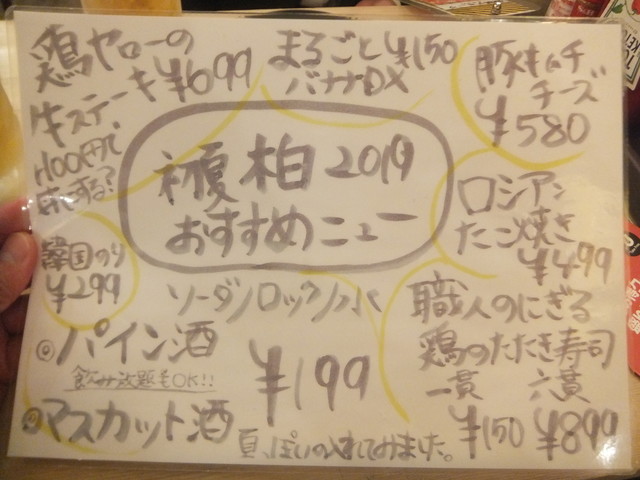 鶏ヤローの
牛ステーキ¥699
+100円で
まるごと¥150
バナナDX
豚キムチ
チーズ
¥580
柏2019
おすすめニュー
ロシアン
たこ焼き
¥499
韓国のり
¥299
ソーダ/ロック/水
◎パイン酒
飲み放題もOK!!
¥199
◎マスカット酒
夏っぽいの入れてみました。
職人のにぎる
鶏のたたき寿司
一貫 六貫
¥150 ¥899